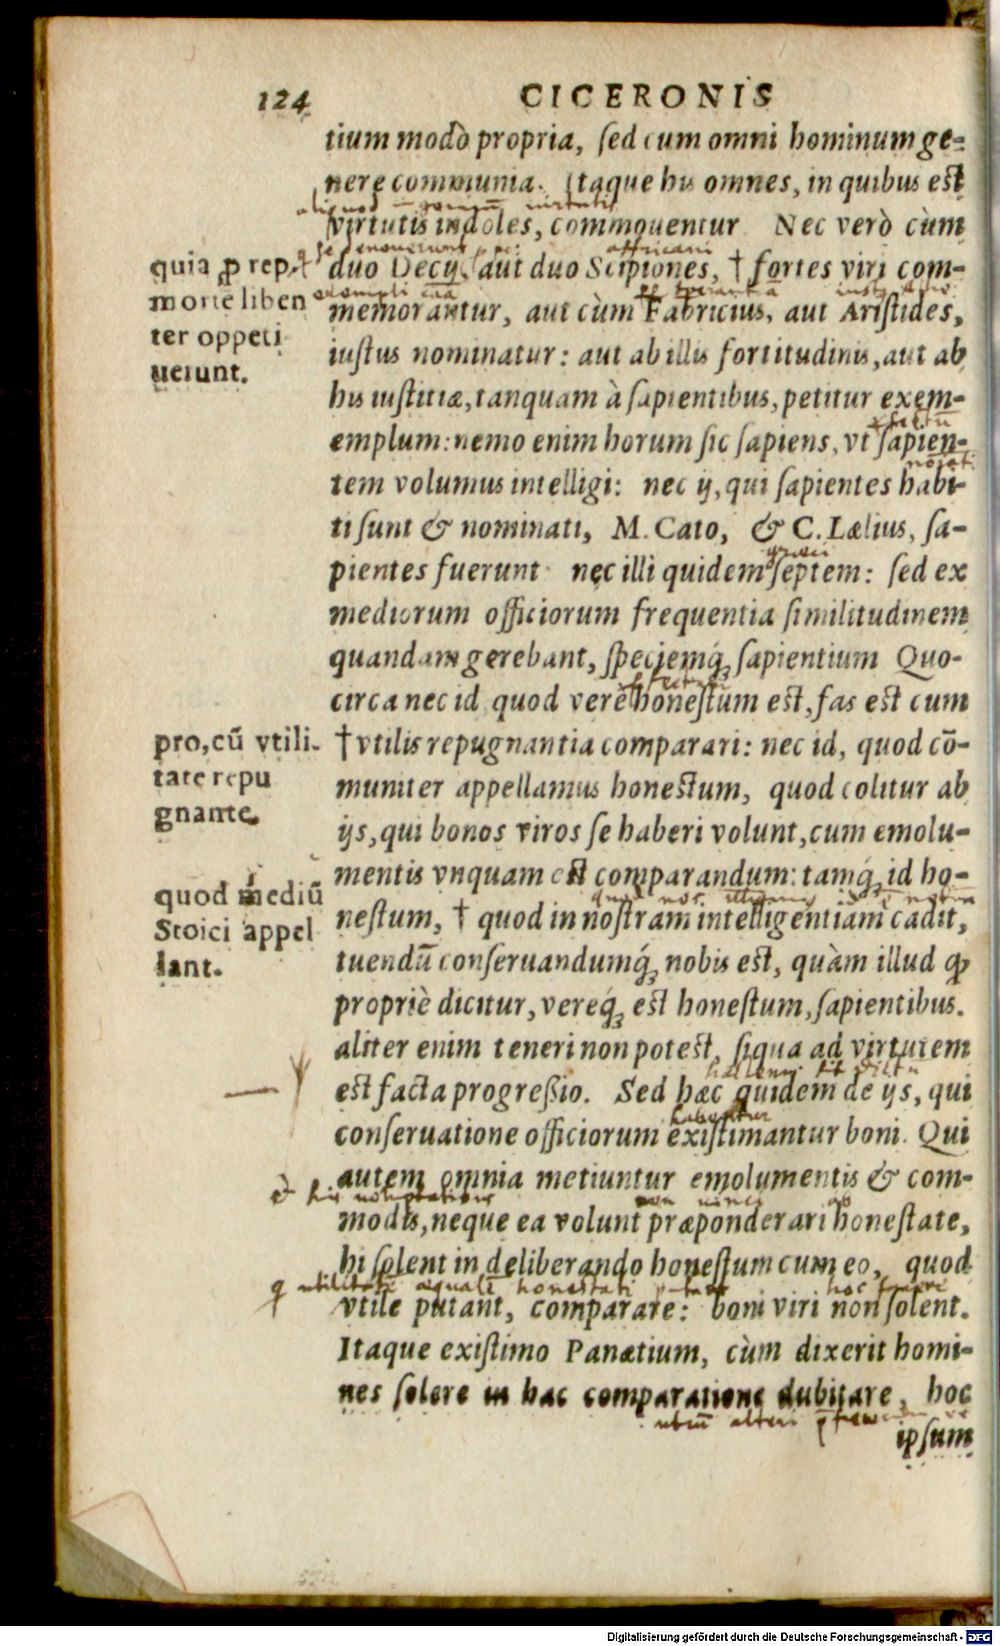 124 CICERONIS
tium modò propria, sed cum omni hominum ge-
nere communia. Itaque his omnes, in quibus est
virtutis indoles, commouentur Nec verò cùm
duo Decij, aut duo Scipiones, † fortes viri com-
memorantur, aut cùm Fabricius, aut Aristides,
iustus nominatur: aut ab illis fortitudinis, aut ab
his iustitiæ, tanquam à sapientibus, petitur exem-
emplum: nemo enim horum sic sapiens, vt sapien-
tem volumus intelligi: nec ij, qui sapientes habi-
ti sunt & nominati, M. Cato, & C. Lælius, sa-
pientes fuerunt nec illi quidem septem: sed ex
mediorum officiorum frequentia similitudinem
quandam gerebant, speciemq́; sapientium Quo-
circa nec id quod verè honestum est, fas est cum
† vtilis repugnantia comparari: nec id, quod cō-
muniter appellamus honestum, quod colitur ab
ijs, qui bonos viros se haberi volunt, cum emolu-
mentis vnquam est comparandum: tamq́; id ho-
nestum, † quod in nostram intelligentiam cadit,
tuendū conseruandumq́; nobis est, quàm illud ꝙ
propriè dicitur, vereq́; est honestum, sapientibus.
aliter enim teneri non potest, siqua ad virtutem
est facta progreßio. Sed hæc quidem de ijs, qui
conseruatione officiorum existimantur boni. Qui
autem omnia metiuntur emolumentis & com-
modis, neque ea volunt præponderari honestate,
hi solent in deliberando honestum cum eo, quod
vtile putant, comparare: boni viri non solent.
Itaque existimo Panætium, cùm dixerit homi-
nes solere in hac comparatione dubitare, hoc
ipsum
quia ꝓ rep.
morte liben
ter oppeti
uerunt.
pro, cū vtili-
tate repu
gnante.
quod mediū
Stoici appel
lant.
virtutis
affricani
exempli
græci
habentur
non vinci ab
utilitatē æqualē honestati
hoc facere
Digitalisierung gefördert durch die Deutsche Forschungsgemeinschaft - DFG